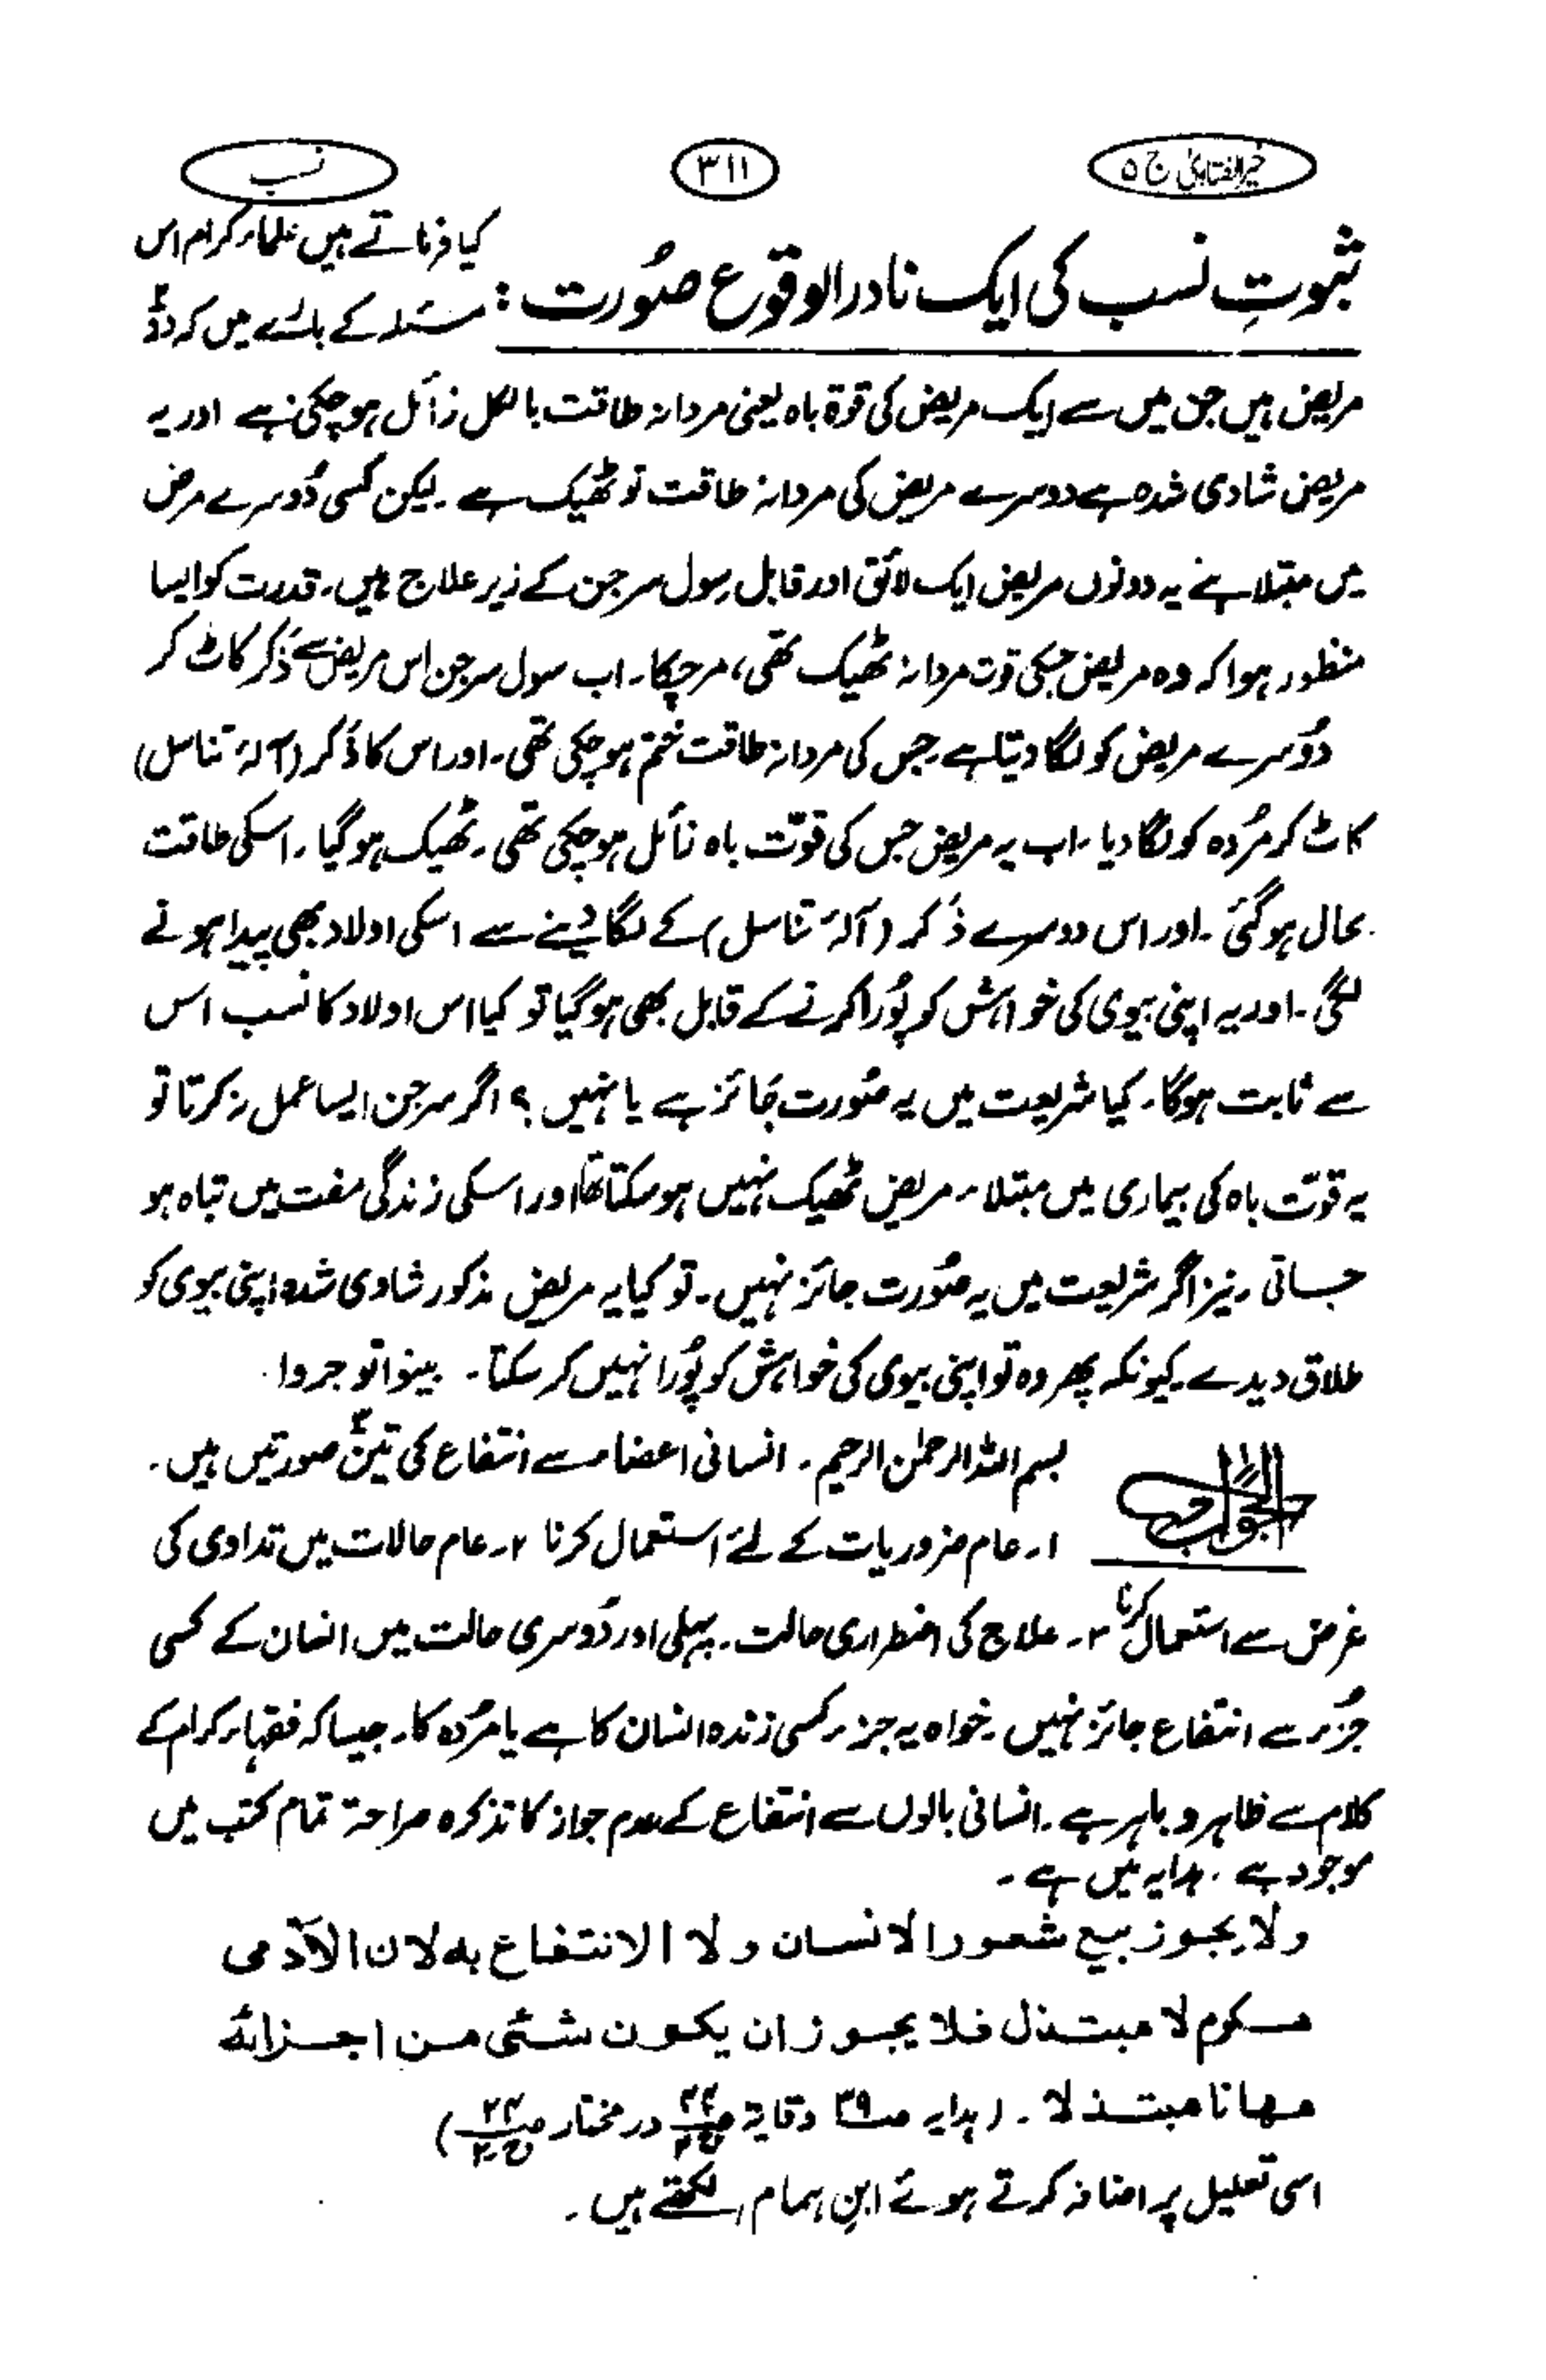 خیر الفتاویٰ ج ۵
۳۱۱
نسب
ثبوتِ نسب کی ایک نادر الوقوع صُورت :
کیا فرماتے ہیں علماء کرام اس
مسئلہ کے بارے میں کہ دوؔ
مریض ہیں جن میں سے ایک مریض کی قوۃ باہ یعنی مردانہ طاقت بالکل زائل ہو چکی ہے اور یہ
مریض شادی شدہ ہے دوسرے مریض کی مردانہ طاقت تو ٹھیک ہے ۔ لیکن کسی دُوسرے مرض
میں مبتلا ہے یہ دونوں مریض ایک لائق اور قابل سول سرجن کے زیر علاج ہیں ۔ قدرت کو ایسا
منظور ہوا کہ وہ مریض جسکی قوت مردانہ ٹھیک تھی ، مر چکا ۔ اب سول سرجن اس مریض سے ذَکر کاٹ کر
دُوسرے مریض کو لگا دیتا ہے جس کی مردانہ طاقت ختم ہو چکی تھی ۔ اور اس کا ذَکر (آلۂ تناسل)
کاٹ کر مُردہ کو لگا دیا ۔ اب یہ مریض جس کی قوتِ باہ زائل ہو چکی تھی ۔ ٹھیک ہو گیا ۔ اسکی طاقت
بحال ہو گئی ۔ اور اس دوسرے ذَکر (آلۂ تناسل) کے لگا دینے سے اسکی اولاد بھی پیدا ہونے
لگی ۔ اور یہ اپنی بیوی کی خواہش کو پُورا کرنے کے قابل بھی ہو گیا تو کیا اس اولاد کا نسب اس
سے ثابت ہوگا ۔ کیا شریعت میں یہ صُورت جَائز ہے یا نہیں ؟ اگر سرجن ایسا عمل نہ کرتا تو
یہ قوتِ باہ کی بیماری میں مبتلاء مریض ٹھیک نہیں ہو سکتا تھا اور اسکی زندگی مفت میں تباہ ہو
جاتی ۔ نیز اگر شریعت میں یہ صُورت جائز نہیں ۔ تو کیا یہ مریض مذکور شادی شدہ اپنی بیوی کو
طلاق دیدے ۔ کیونکہ پھر وہ تو اپنی بیوی کی خواہش کو پُورا نہیں کر سکتا ۔ بینوا توجروا ۔
الجواب
بسم اللہ الرحمٰن الرحیم ۔ انسانی اعضاء سے انتفاع کی تین۳ صورتیں ہیں ۔
۱ ۔ عام ضروریات کے لئے استعمال کرنا ۲ ۔ عام حالات میں تداوی کی
غرض سے استعمال کرنا ۳ ۔ علاج کی اضطراری حالت ۔ پہلی اور دُوسری حالت میں انسان کے کسی
جُزء سے انتفاع جائز نہیں ۔ خواہ یہ جزء کسی زندہ انسان کا ہے یا مُردہ کا ۔ جیسا کہ فقہاء کرام کے
کلام سے ظاہر و باہر ہے ۔ انسانی بالوں سے انتفاع کے عدم جواز کا تذکرہ صراحۃ تمام کتب میں
موجود ہے ۔ ہدایہ میں ہے ۔
ولا يجوز بيع شعور الانسان ولا الانتفاع به لان الآدمى
مكرم لا مبتذل فلا يجوز ان يكون شئى من اجزائه
مهانا مبتذلا ۔ (ہدایہ صـ۳۹ وقایۃ در مختار )
اسی تعلیل پر اضافہ کرتے ہوئے ابنِ ہمام لکھتے ہیں ۔